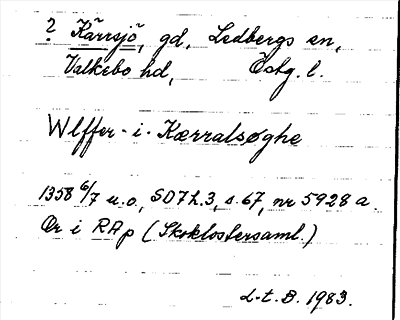 ? Kärrsjö, gd, Ledbergs sn,
Valkebo hd, Östg. l.
Wlffer - i - Kærralsøghe
1358 6/7 u.o., SD 7 h. 3, s. 67, nr 5928 a.
Or i RAp (Skoklostersaml.)
L-t. B. 1983.